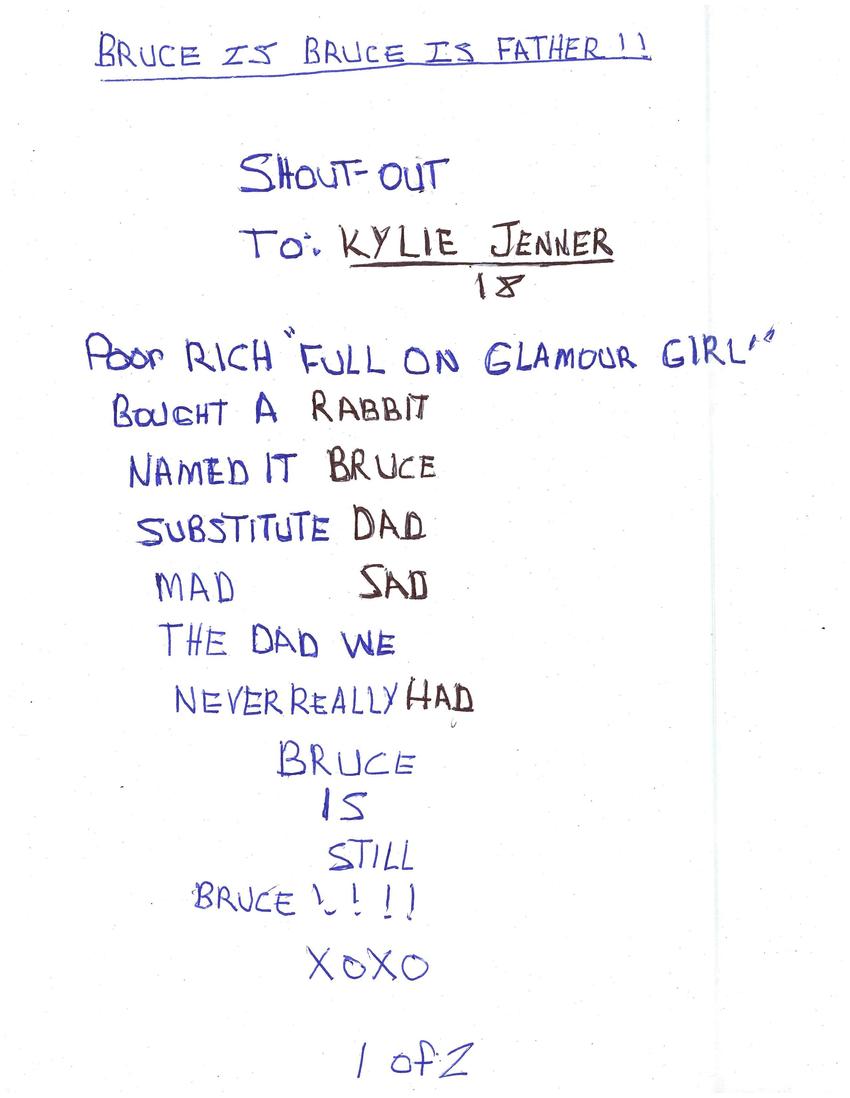 BRUCE IS BRUCE IS FATHER!!
SHOUT-OUT
TO: KYLIE JENNER
18
Poor RICH "FULL ON GLAMOUR GIRL"
BOUGHT A RABBIT
NAMED IT BRUCE
SUBSTITUTE DAD
MAD SAD
THE DAD WE
NEVER REALLY HAD
BRUCE
IS
STILL
BRUCE!!!!
XOXO
1 of 2